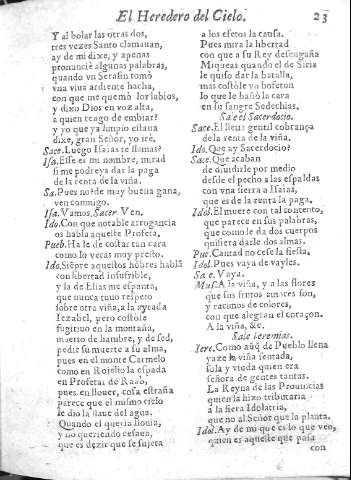 El Heredero del Cielo. 23
Y al bolar las otras dos,
tres vezes Santo clamauan,
ay de mi dixe, y apenas
pronuncié algunas palabras,
quando vn Serafin tomò
vna viua ardiente hacha,
con que me quemò los labios,
y dixo Dios en voz alta,
a quien tengo de embiar?
y yo que ya limpio estaua
dixe, gran Señor, yo iré.
Sace. Luego Isaias te llamas?
Isa. Esse es mi nombre, mirad
si me podreys dar la paga
de la renta de la viña.
Sa. Pues no? de muy buena gana,
ven conmigo.
Isa. Vamos, Sacer. Ven.
Ido. Con que notable arrogancia
os habla aqueste Profeta.
Pueb. Ha le de costar tan cara
como lo veras muy presto.
Ido. Siēpre aquestos hõbres hablā
con libertad insufrible,
y la de Elias me espanta,
que nunca tuuo respeto
sobre otra viña, a la ayrada
Iezabel, pero costóle
fugitiuo en la montaña,
muerto de hambre, y de sed,
pedir su muerte a su alma,
pues en el monte Carmelo
como en Rosello la espada
en Profetas de Raab,
pues en llouer, cosa estraña
parece que el mismo cielo
le dio la llaue del agua.
Quando el queria llouia,
y no queriendo cesaua,
que es dezir que se sujeta
a los efetos la causa.
Pues mira la libertad
con que a su Rey desengaña
Miqueas quando el de Siria
le quiso dar la batalla,
mas costóle vn bofeton
lo que le bañó la cara
en so sangre Sedechias.
Sale el Sacerdocio.
Sace. El lleua gentil cobrança
de la renta de la viña.
Ido. Que ay Sacerdocio?
Sace. Que acaban
de diuidirle por medio
desde el pecho a las espaldas
con vna sierra a Isaias,
que es de la renta la paga.
Idol. El muere con tal contento,
que parece en sus palabras,
que como le da dos cuerpos
quisiera darle dos almas.
Pue. Cantad no cesse la fiesta.
Idol. Pues vaya de vayles.
Sace. Vaya.
Mus. A la viña, y a las flores
que sus frutos amores son,
y razimos de colores,
con que alegran el coraçon.
A la viña, &c.
Sale Ieremias.
Iere. Como aūq̃ de Pueblo llena
yaze la viña sentada,
sola y viuda quien era
señora de gentes tantas.
La Reyna de las Prouincias
quien la hizo tributaria
a la fiera Idolatria,
que no al Señor que la planta.
Idol. Ay de mi que es lo que ven,
quien es aqueste que passa
con